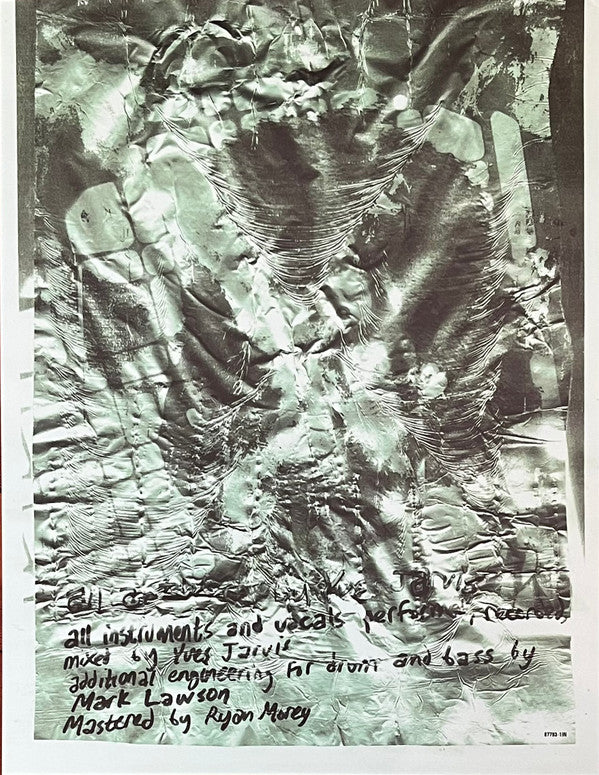 by Yves Jarvis
all instruments and vocals performed, recorded,
mixed by Yves Jarvis
additional engineering for drum and bass by
Mark Lawson
Mastered by Ryan Morey
87783-1IN